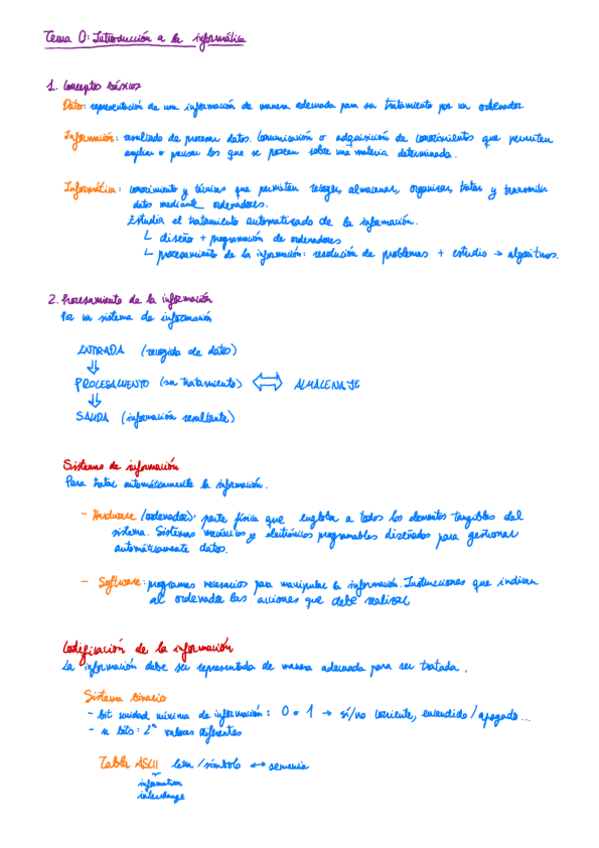 Tema 0: Introducción a la informática
1. Conceptos básicos
Dato: representación de una información de manera adecuada para su tratamiento por un ordenador
Información: resultado de procesar datos. Comunicación o adquisición de conocimientos que permiten
ampliar o precisar los que se poseen sobre una materia determinada.
Informática: conocimiento y técnicas que permiten recoger, almacenar, organizar, tratar y transmitir
datos mediante ordenadores.
Estudia el tratamiento automatizado de la información.
↳ diseño + programación de ordenadores
↳ procesamiento de la información: resolución de problemas + estudio → algoritmos.
2. Procesamiento de la información
Por un sistema de información
ENTRADA (recogida de datos)
⇓
PROCESAMIENTO (su tratamiento) ⇔ ALMACENAJE
⇓
SALIDA (información resultante)
Sistemas de información
Para tratar automáticamente la información.
- Hardware (ordenador): parte física que engloba a todos los elementos tangibles del
sistema. Sistemas mecánicos y electrónicos programables diseñados para gestionar
automáticamente datos.
- Software: programas necesarios para manipular la información. Instrucciones que indican
al ordenador las acciones que debe realizar
Codificación de la información
La información debe ser representada de manera adecuada para ser tratada.
Sistema binario
- bit unidad mínima de información: 0 o 1 → sí/no corriente, encendido/apagado...
- n bits: 2ⁿ valores diferentes
Tabla ASCII letra/símbolo ↔
information
interchange